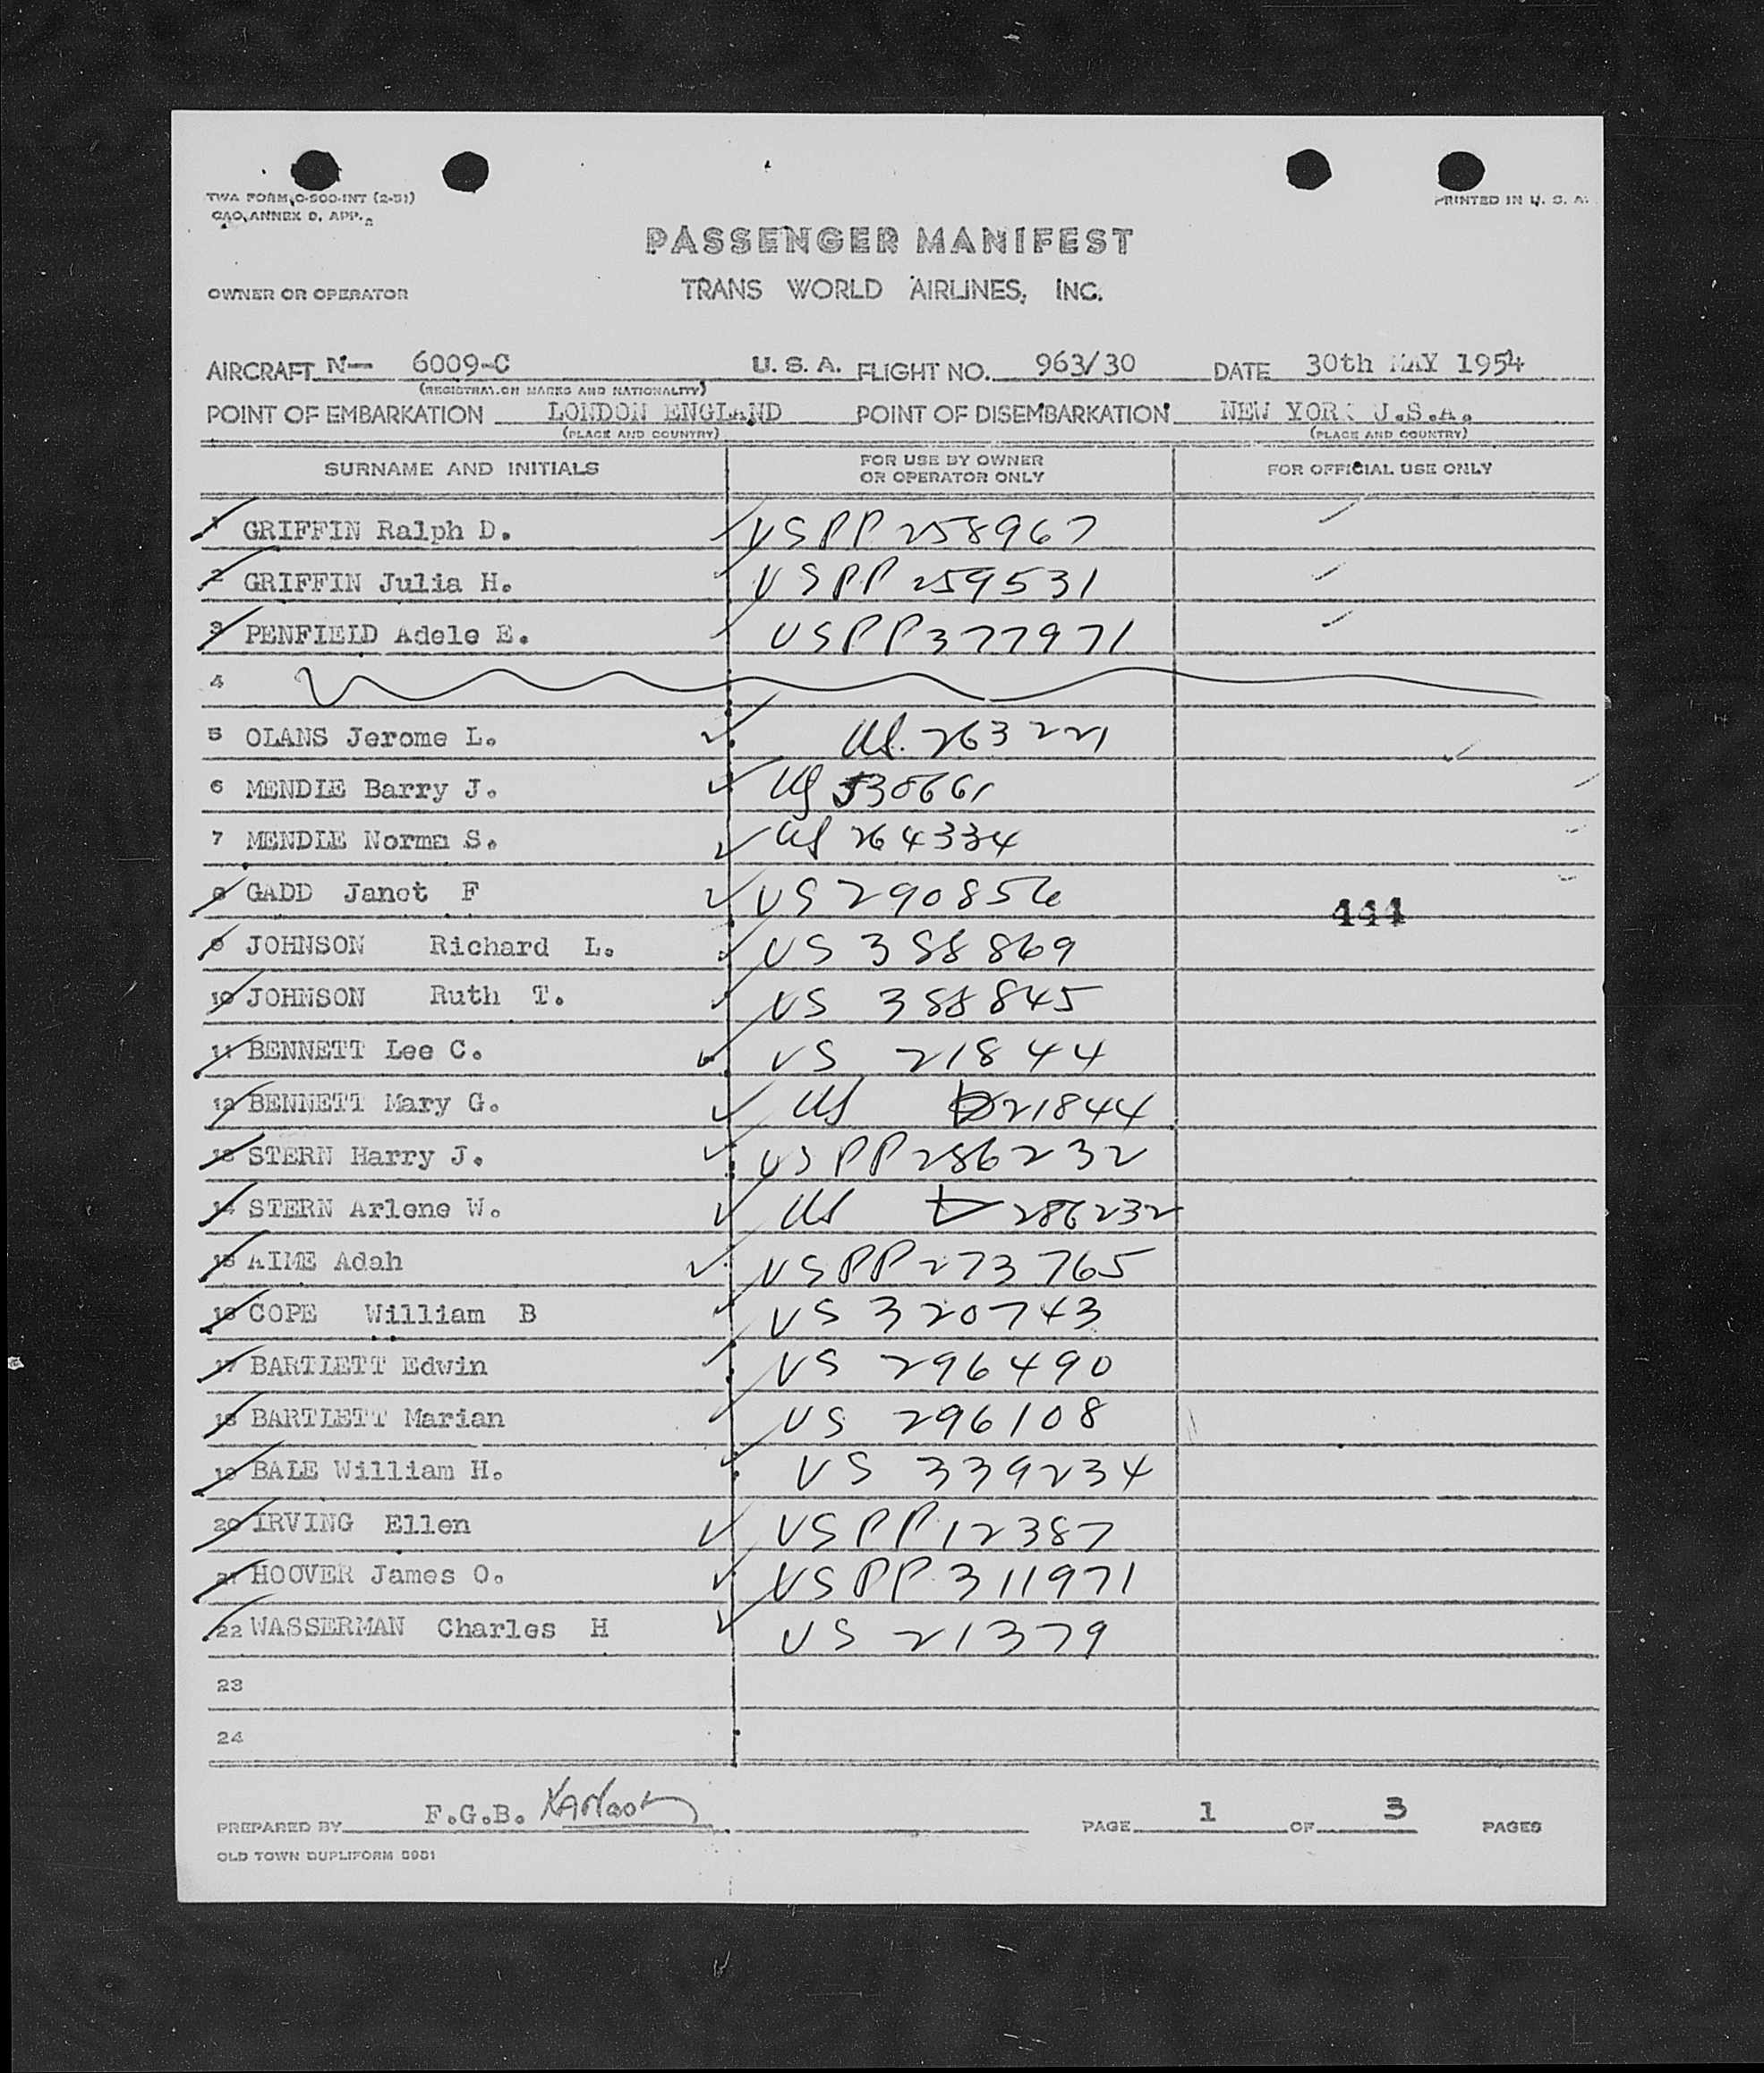 TWA FORM O-500-INT (2-51)
CAO, ANNEX D, APP.
PRINTED IN U. S. A.
PASSENGER MANIFEST
OWNER OR OPERATOR
TRANS WORLD AIRLINES, INC.
AIRCRAFT N— 6009-C U. S. A. FLIGHT NO. 963/30 DATE 30th MAY 1954
(REGISTRATION MARKS AND NATIONALITY)
POINT OF EMBARKATION LONDON ENGLAND POINT OF DISEMBARKATION NEW YORK U.S.A.
(PLACE AND COUNTRY) (PLACE AND COUNTRY)
SURNAME AND INITIALS FOR USE BY OWNER OR OPERATOR ONLY FOR OFFICIAL USE ONLY
1 GRIFFIN Ralph D. USPP 258967
2 GRIFFIN Julia H. USPP 259531
3 PENFIELD Adele E. USPP 377971
4
5 OLANS Jerome L. US. 263221
6 MENDLE Barry J. US
7 MENDLE Norma S. US 264334
8 GADD Janet F US 290856
444
9 JOHNSON Richard L. US 388869
10 JOHNSON Ruth T. US 388845
11 BENNETT Lee C. US 21844
12 BENNETT Mary G. US 21844
13 STERN Harry J. USPP 286232
14 STERN Arlene W. US 286232
15 AIME Adah USPP 273765
16 COPE William B US 320743
17 BARTLETT Edwin US 296490
18 BARTLETT Marian US 296108
19 BALE William H. US 339234
20 IRVING Ellen USPP 12387
21 HOOVER James O. USPP 311971
22 WASSERMAN Charles H US 21379
23
24
PREPARED BY F.G.B. PAGE 1 OF 3 PAGES
OLD TOWN DUPLIFORM 5981